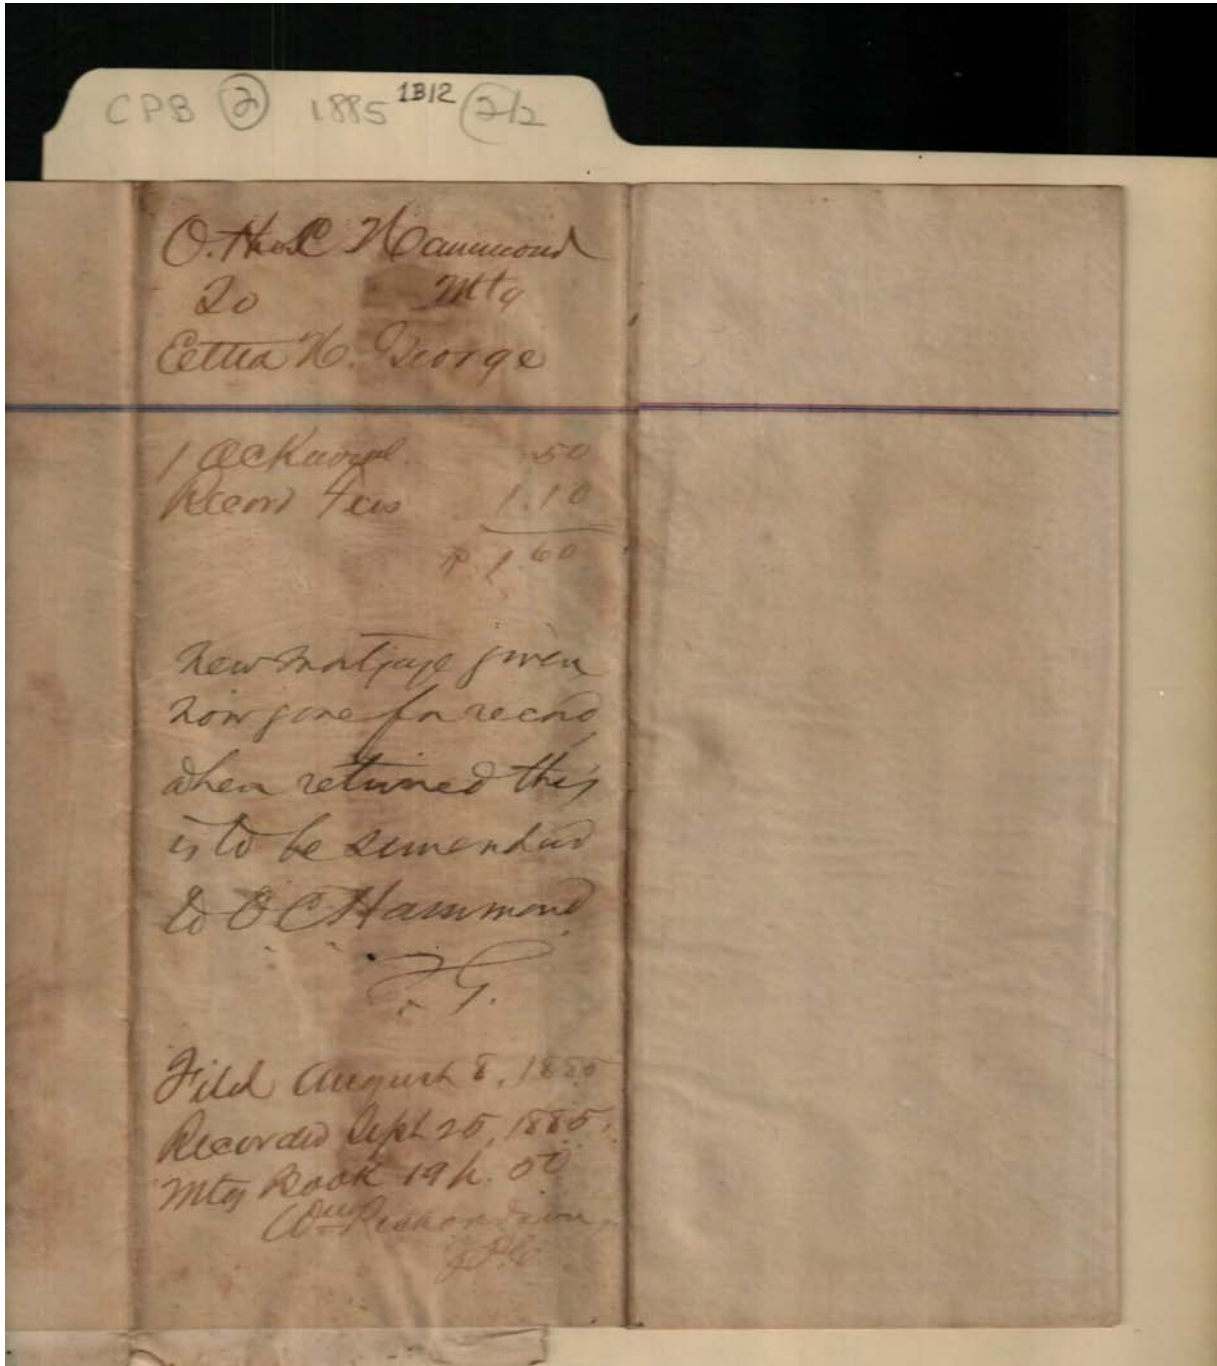 CPB 2 1885 1B12 2/2
O. C Hammond
To Mtg
Etta H. George
1 Ack .50
Record Fees 1.10
$ 1.60
New mortgage given
now gone for record
when returned this
is to be
to O C Hammond
G.
Filed August 8, 1885
Recorded Sept 25, 1885.
Mtg Book 19 p. 50
Wm Richardson